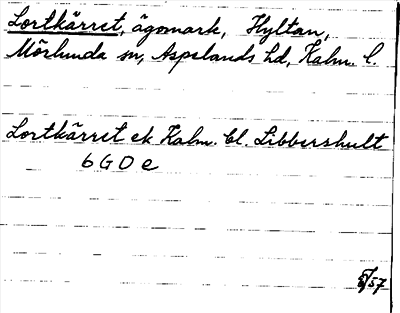 Lortkärret, ägomark, Hyltan,
Mörlunda sn, Aspelands hd, Kalm. l.
Lortkärret ek Kalm. bl. Libbershult
6 G D e
5/57